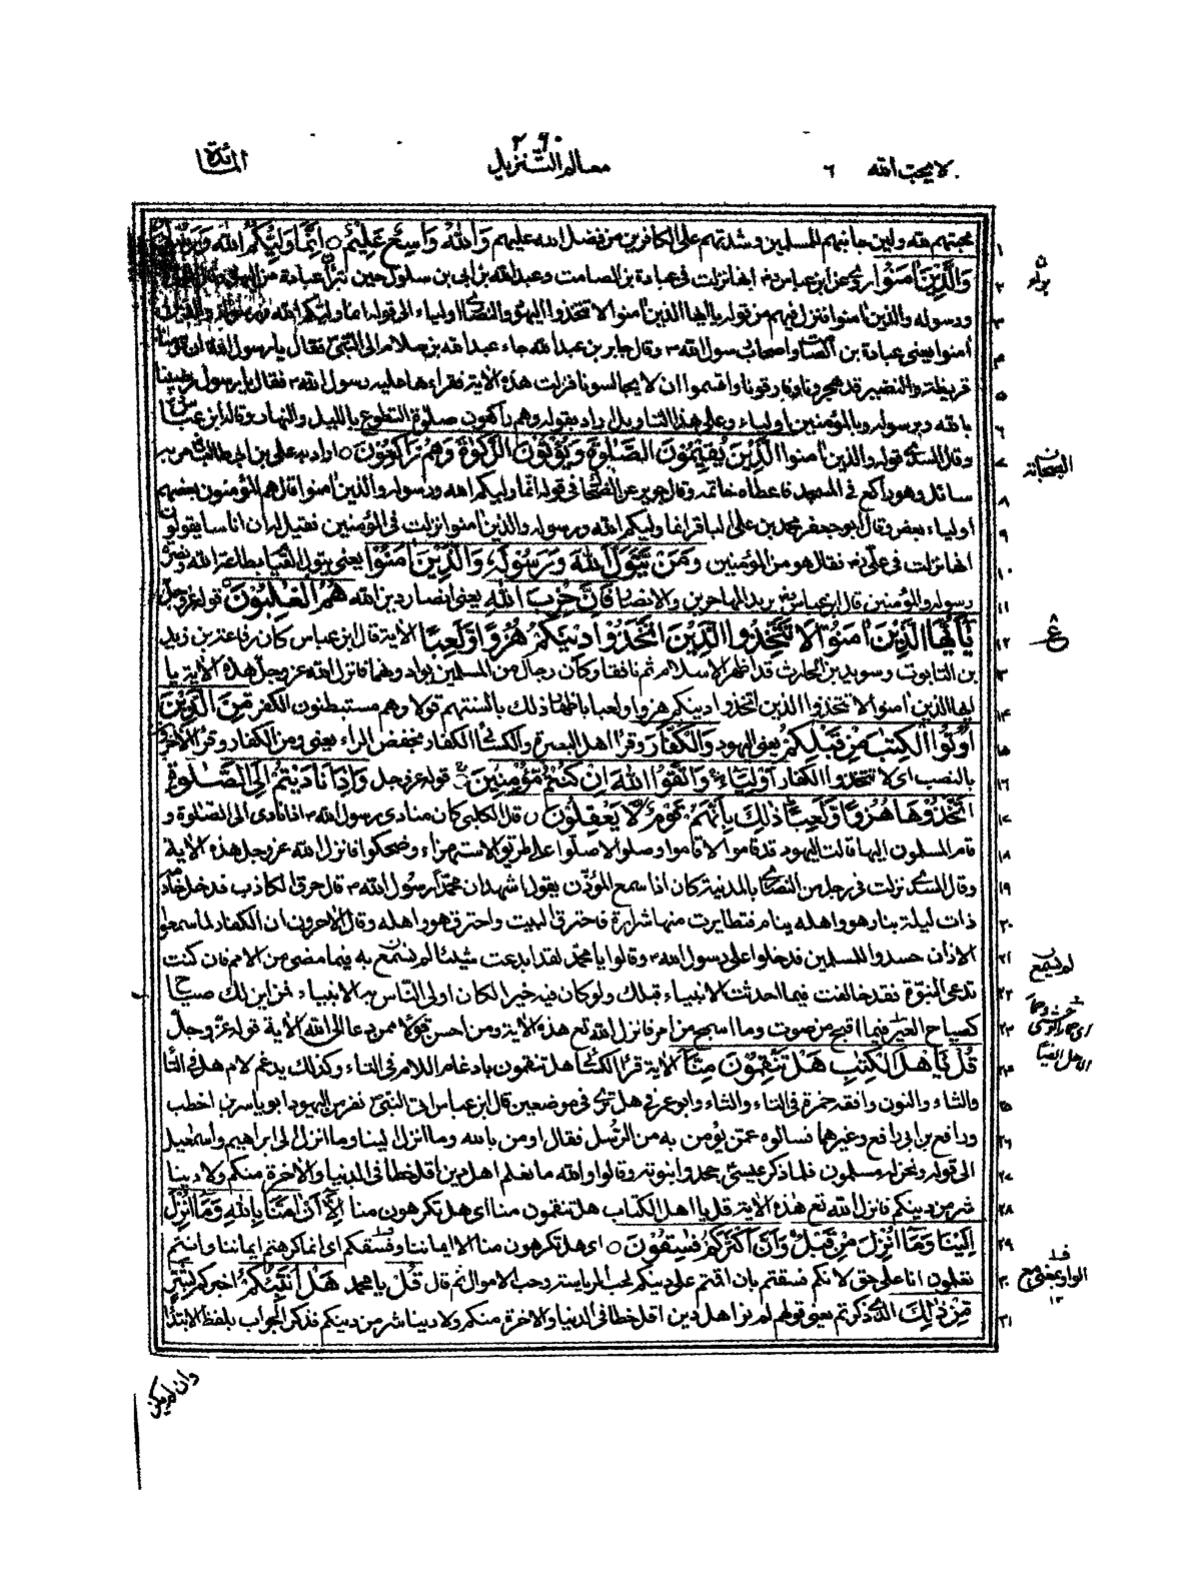 لا يحب الله ٦
معالم التنزيل
٢٦٠
المائدة
محبتهم لله ولين جانبهم للمسلمين وشدتهم على الكافرين من فضل الله عليهم وَاللّٰهُ وَاسِعٌ عَلِيْمٌ ○ اِنَّمَا وَلِيُّكُمُ اللّٰهُ وَرَسُوْلُهُ
وَالَّذِيْنَ اٰمَنُوْا روى عن ابن عباس انها نزلت فى عبادة بن الصامت وعبد الله بن ابى بن سلول حين تبرأ عبادة من اليهود
ورسوله والذين امنوا فنزل فيهم من قوله يايها الذين امنوا لا تتخذوا اليهود والنصارى اولياء الى قوله انما وليكم الله ورسوله والذين
امنوا يعنى عبادة بن الصامت واصحاب رسول الله وقال جابر بن عبد الله جاء عبد الله بن سلام الى النبى فقال يا رسول الله ان قومنا
قريظة والنضير قد هجرونا وفارقونا واقسموا ان لا يجالسونا فنزلت هذه الاية فقراءها عليه رسول الله فقال يا رسول الله رضينا
بالله وبرسوله وبالمؤمنين اولياء وعلى هذا التاويل اراد بقوله وهم راكعون صلوة التطوع بالليل والنهار وقال ابن عباس
وقال السدى قوله والذين امنوا الَّذِيْنَ يُقِيْمُوْنَ الصَّلٰوةَ وَيُؤْتُوْنَ الزَّكٰوةَ وَهُمْ رَاكِعُوْنَ ○ اراد به على بن ابى طالب مر به
سائل وهو راكع فى المسجد فاعطاه خاتمه وقال جويبر عن الضحاك فى قوله انما وليكم الله ورسوله والذين امنوا قال هم المؤمنون بعضهم
اولياء بعض وقال ابو جعفر محمد بن على الباقر انما وليكم الله ورسوله والذين امنوا نزلت فى المؤمنين فقيل له ان اناسا يقولون
انها نزلت فى على فقال هو من المؤمنين وَمَنْ يَّتَوَلَّ اللّٰهَ وَرَسُوْلَهٗ وَالَّذِيْنَ اٰمَنُوْا يعنى يتول القيام بطاعة الله ونصرة
رسوله والمؤمنين قال ابن عباس يريد المهاجرين والانصار فَاِنَّ حِزْبَ اللّٰهِ يعنى انصار دين الله هُمُ الْغٰلِبُوْنَ قوله عز وجل
يٰٓاَيُّهَا الَّذِيْنَ اٰمَنُوْا لَا تَتَّخِذُوا الَّذِيْنَ اتَّخَذُوْا دِيْنَكُمْ هُزُوًا وَّلَعِبًا الاية قال ابن عباس كان رفاعة بن زيد
بن التابوت وسويد بن الحارث قد اظهرا الاسلام ثم نافقا وكان رجال من المسلمين يوادونهما فانزل الله عز وجل هذه الاية يا
ايها الذين امنوا لا تتخذوا الذين اتخذوا دينكم هزوا ولعبا باظهار ذلك بالسنتهم قولا وهم مستبطنون الكفر مِّنَ الَّذِيْنَ
اُوْتُوا الْكِتٰبَ مِنْ قَبْلِكُمْ يعنى اليهود وَالْكُفَّارَ وقرأ اهل البصرة والكسائى الكفار بخفض الراء يعنى ومن الكفار وقرأ الاخرون
بالنصب اى لا تتخذوا الكفار اَوْلِيَاءَ وَاتَّقُوا اللّٰهَ اِنْ كُنْتُمْ مُّؤْمِنِيْنَ قوله عز وجل وَاِذَا نَادَيْتُمْ اِلَى الصَّلٰوةِ
اتَّخَذُوْهَا هُزُوًا وَّلَعِبًا ذٰلِكَ بِاَنَّهُمْ قَوْمٌ لَّا يَعْقِلُوْنَ قال الكلبى كان منادى رسول الله اذا نادى الى الصلوة و
قام المسلمون اليها قالت اليهود قد قاموا لا قاموا وصلوا لا صلوا على طريق الاستهزاء وضحكوا فانزل الله عز وجل هذه الاية
وقال السدى نزلت فى رجل من النصارى بالمدينة كان اذا سمع المؤذن يقول اشهد ان محمدا رسول الله قال حرق الكاذب فدخل خادمه
ذات ليلة بنار وهو واهله ينام فتطايرت منها شرارة فاحترق البيت واحترق هو واهله وقال الاخرون ان الكفار لما سمعوا
الاذان حسدوا المسلمين فدخلوا على رسول الله وقالوا يا محمد لقد ابدعت شيئا لم نسمع به فيما مضى من الامم فان كنت
تدعى النبوة فقد خالفت فيما احدثت الانبياء قبلك ولو كان فيه خير لكان اولى الناس به الانبياء فمن اين لك صياح
كصياح العير فما اقبح من صوت وما اسمج من امر فانزل الله تع هذه الاية ومن احسن قولا ممن دعا الى الله الاية قوله عز وجل
قُلْ يٰٓاَهْلَ الْكِتٰبِ هَلْ تَنْقِمُوْنَ مِنَّآ الاية قرأ الكسائى هل تنقمون بادغام اللام فى التاء وكذلك يدغم لام هل فى التاء
والثاء والنون وافقه حمزة فى التاء والثاء وابو عمرو فى هل ترى فى موضعين قال ابن عباس اتى النبى نفر من اليهود ابو ياسر بن اخطب
ورافع بن ابى رافع وغيرهما فسالوه عمن يؤمن به من الرسل فقال اومن بالله وما انزل الينا وما انزل الى ابراهيم واسمعيل
الى قوله ونحن له مسلمون فلما ذكر عيسى جحدوا نبوته وقالوا والله ما نعلم اهل دين اقل حظا فى الدنيا والاخرة منكم ولا دينا
شرا من دينكم فانزل الله تع هذه الاية قل يا اهل الكتاب هل تنقمون منا اى هل تكرهون منا اِلَّآ اَنْ اٰمَنَّا بِاللّٰهِ وَمَآ اُنْزِلَ
اِلَيْنَا وَمَآ اُنْزِلَ مِنْ قَبْلُ وَاَنَّ اَكْثَرَكُمْ فٰسِقُوْنَ ○ اى هل تكرهون منا الا ايماننا وفسقكم اى انما كرهتم ايماننا وانتم
تعلمون انا على حق لانكم فسقتم بان اقمتم على دينكم لحب الرياسة وحب الاموال ثم قال قُلْ يا محمد هَلْ اُنَبِّئُكُمْ اخبركم بِشَرٍّ
مِّنْ ذٰلِكَ الذى ذكرتم يعنى قولهم لم نر اهل دين اقل حظا فى الدنيا والاخرة منكم ولا دينا شرا من دينكم فذكر الجواب بلفظ الابتداء
لم نسمع
وان لم يكن